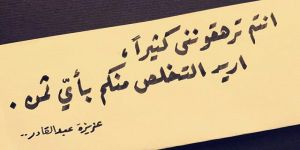 انتم ترهقونني كثيراً،
اريد التخلص منكم بأيّ ثمن.
عزيزة عبدالقادر..